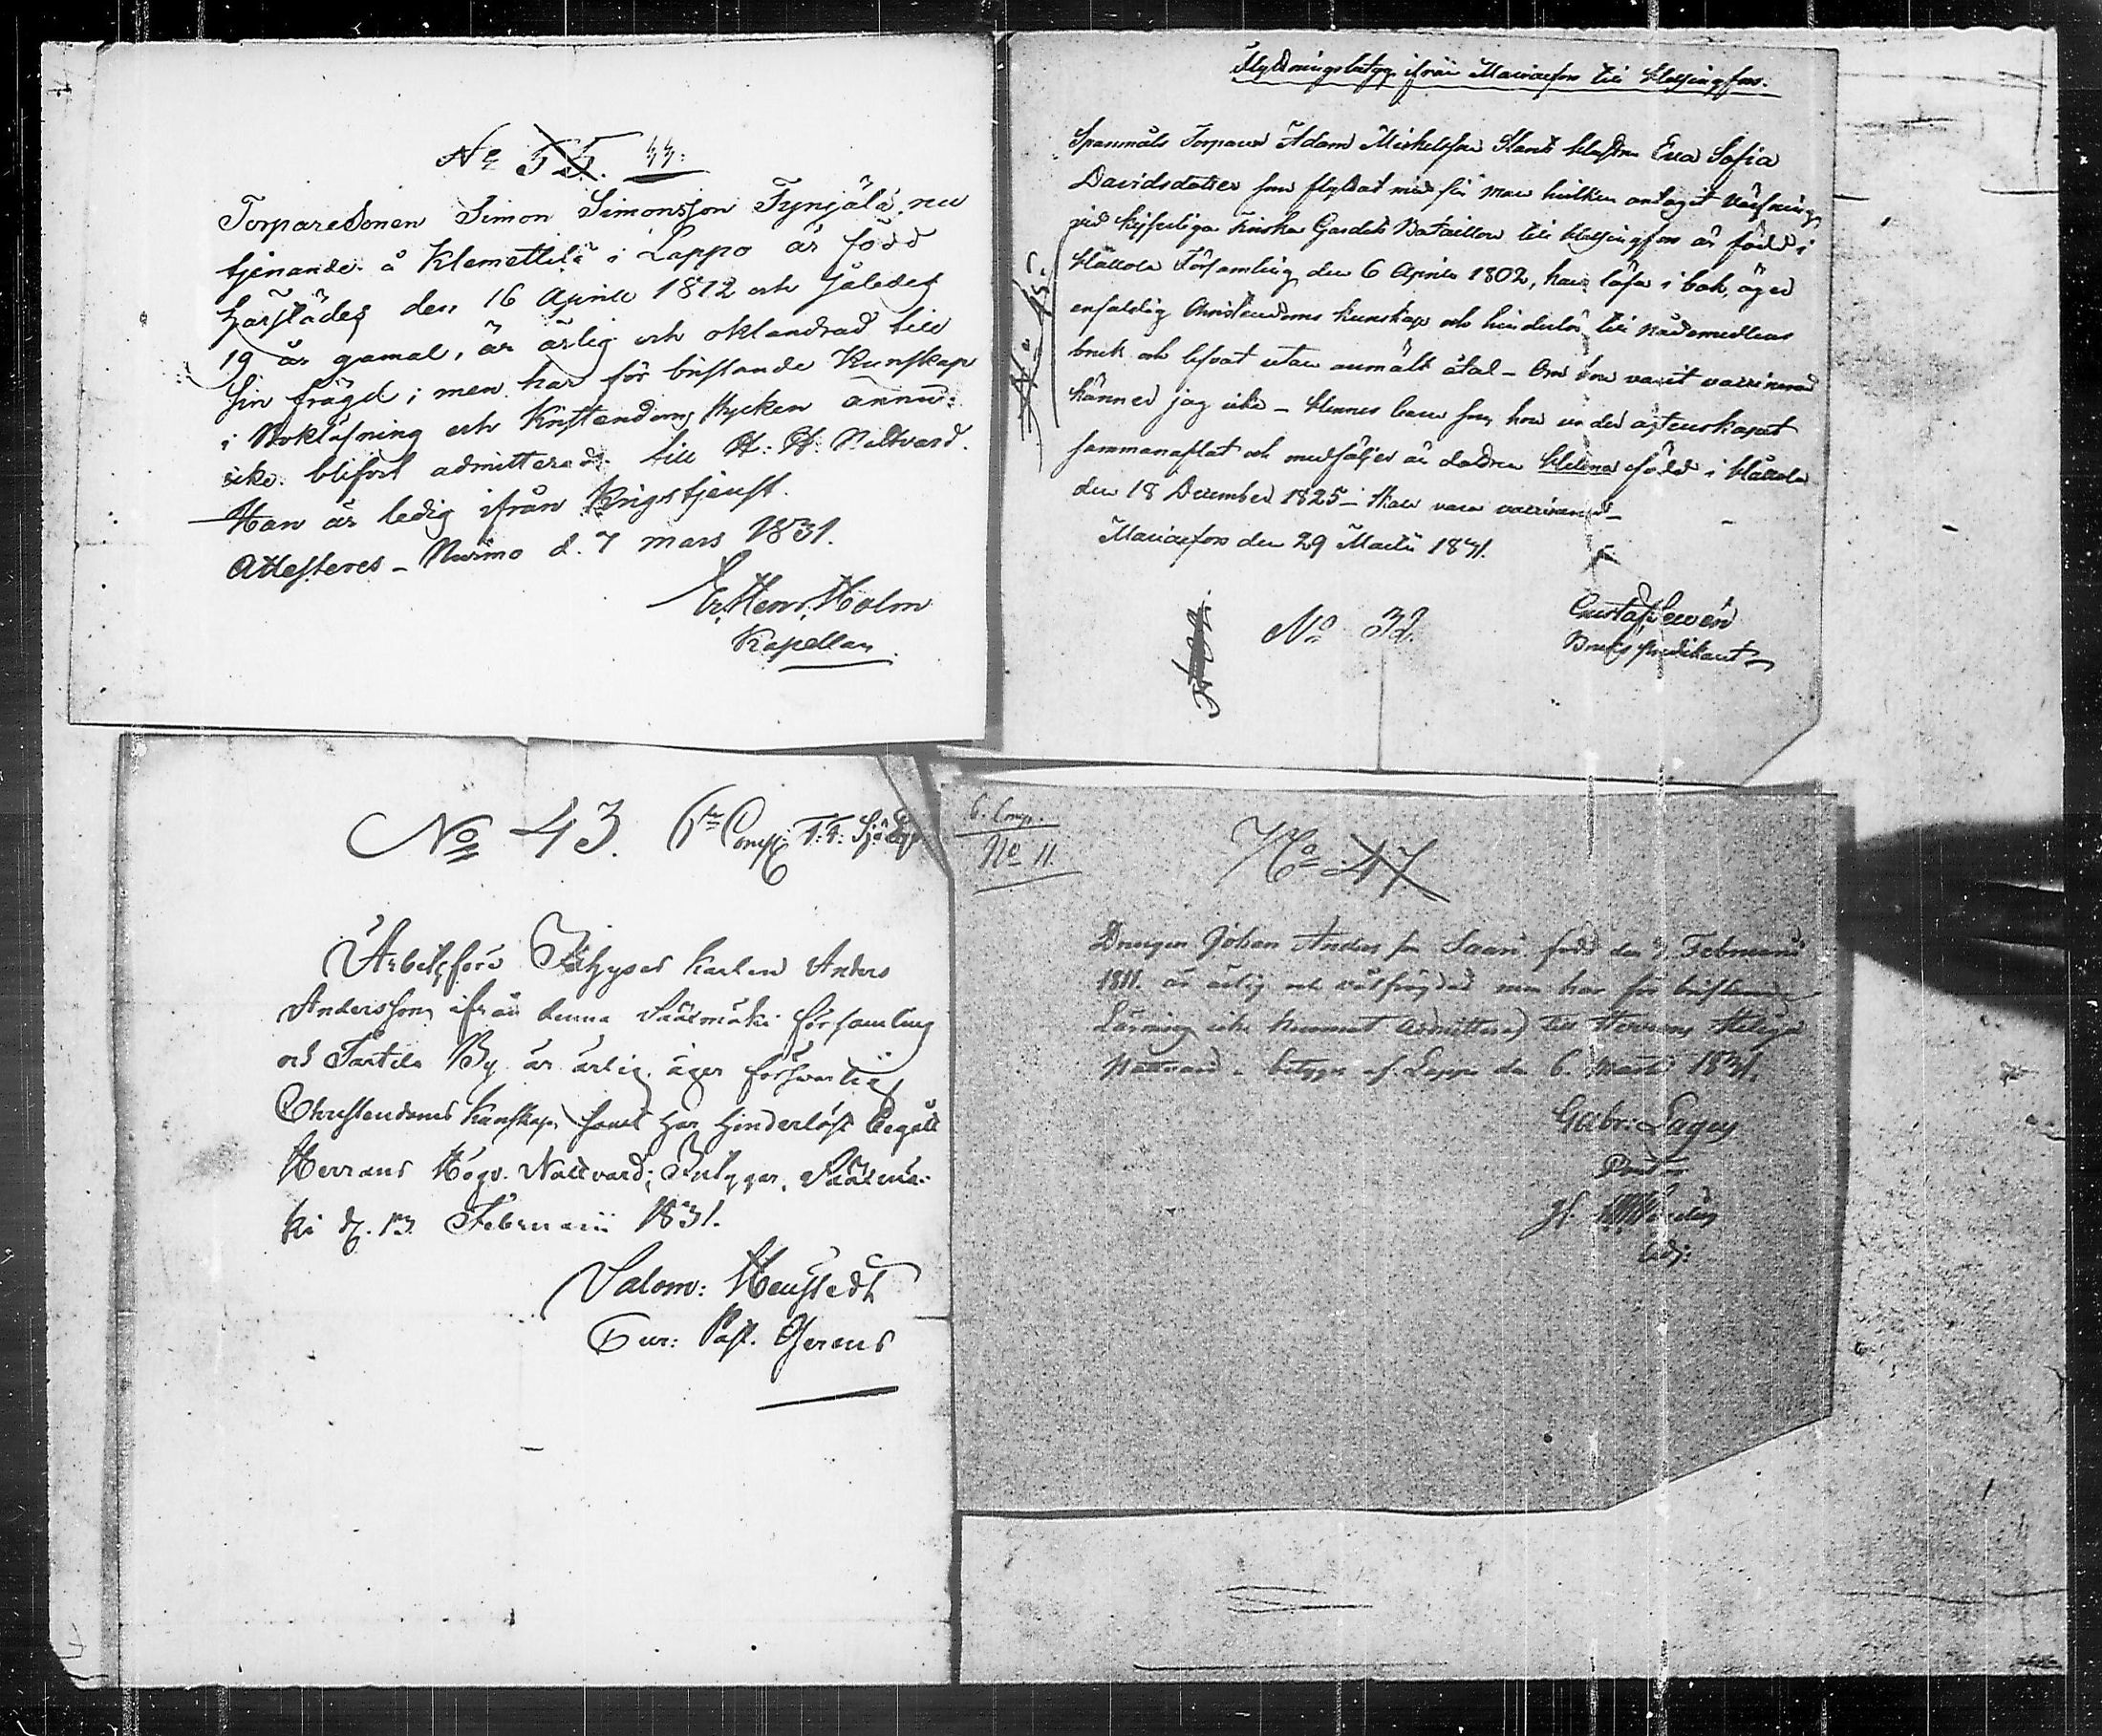 No 55. 44:
Torparesonen Simon Simonsson Tynjälä, nu
tjenande å Klemettilä i Lappo är född
härstädes den 16 Aprill 1812 och således
19 år gamal, är ärlig och oklandrad till
sin frägd; men har för bristande Kunskap
i Bokläsning och Kristendoms stycken ännu
icke blifvit admitterad till H: H: Nattvard.
Han är ledig ifrån Krigstjenst.
Attesteres - Nurmo d. 7 mars 1831.
Er. Henr. Holm
Kapellan
Flyttningsbetyg ifrån Mariaefors till Helsingfors.
Spanmåls Torparen Adam Mickelsson hustru Eva Sofia
Davidsdotter som flyttat med sin man hvilken antagit värfning
vid Kejserliga Finska Gardets Bataillon till Helsingfors är född i
Församling den 6 Aprill 1802, kan läsa i bok, äger
enfaldig Christendoms kunskap och hinderlös till Nådemedlens
bruk och lefvat utan anmält åtal - Om hon varit vaccinerad
känner jag icke - Hennes barn som hon under äktenskapet
sammanaflat och medföljer är dottren Helena född i
den 18 December 1825 - skall vara vaccinerad -
Mariaefors den 29 Martii 1831.
No 32.
Gustaf
Bruks predikant
No 43. 6te Comp:
Arbetsföre Karlen Anders
Andersson ifrån denna Sääxmäki församling
och By är ärlig, äger försvarlig
Christendoms kunskap, samt har hinderlöst begått
Herrans Högv. Nattvard; Intygar, Sääxmä-
ki d. 13 Februarii 1831.
Salom: Henstedt
Cur: Past. Gerens
6. Comp.
No 11.
No 47
Drengen Johan Anders son Saari född den Februarii
1811. är ärlig och välfrägdad men har för bristande
Läsning icke kunnat admitteras till Herrans Heliga
Nattvard - betygar af Lappo den 6. Martii 1831.
Gabr: Lagus
Adj: